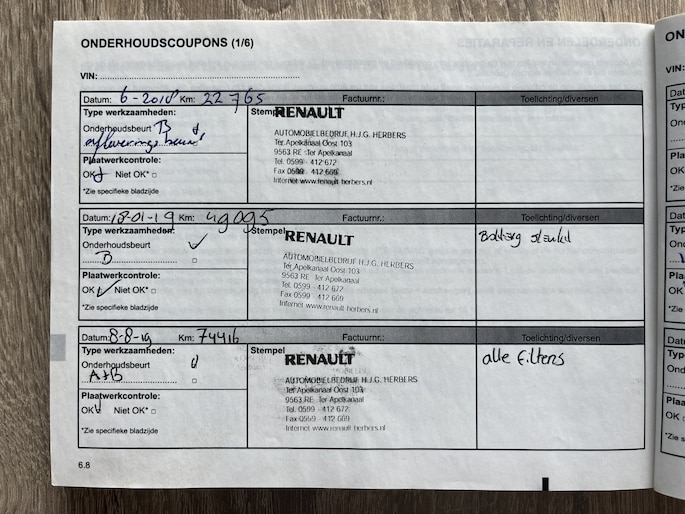 ONDERHOUDSCOUPONS (1/6)
VIN:
Datum: 6-2018 Km: 22765 Factuurnr.: Toelichting/diversen
Type werkzaamheden: Stempel RENAULT
Onderhoudsbeurt B
afleveringsbeurt
AUTOMOBIELBEDRIJF H.J.G. HERBERS
Ter Apelkanaal Oost 103
9563 RE Ter Apelkanaal
Tel. 0599 - 412 672
Fax 0599 - 412 669
Internet www.renault-herbers.nl
Plaatwerkcontrole:
OK Niet OK* □
*Zie specifieke bladzijde
Datum: 18-01-19 Km: 49095 Factuurnr.: Toelichting/diversen
Type werkzaamheden: Stempel RENAULT
Onderhoudsbeurt
B □
AUTOMOBIELBEDRIJF H.J.G. HERBERS
Ter Apelkanaal Oost 103
9563 RE Ter Apelkanaal
Tel. 0599 - 412 672
Fax 0599 - 412 669
Internet www.renault-herbers.nl
Plaatwerkcontrole:
OK Niet OK* □
*Zie specifieke bladzijde
Datum: 8-8-19 Km: 74416 Factuurnr.: Toelichting/diversen
Type werkzaamheden: Stempel RENAULT alle filters
Onderhoudsbeurt
A+B □
AUTOMOBIELBEDRIJF H.J.G. HERBERS
Ter Apelkanaal Oost 103
9563 RE Ter Apelkanaal
Tel. 0599 - 412 672
Fax 0599 - 412 669
Internet www.renault-herbers.nl
Plaatwerkcontrole:
OK Niet OK* □
*Zie specifieke bladzijde
6.8